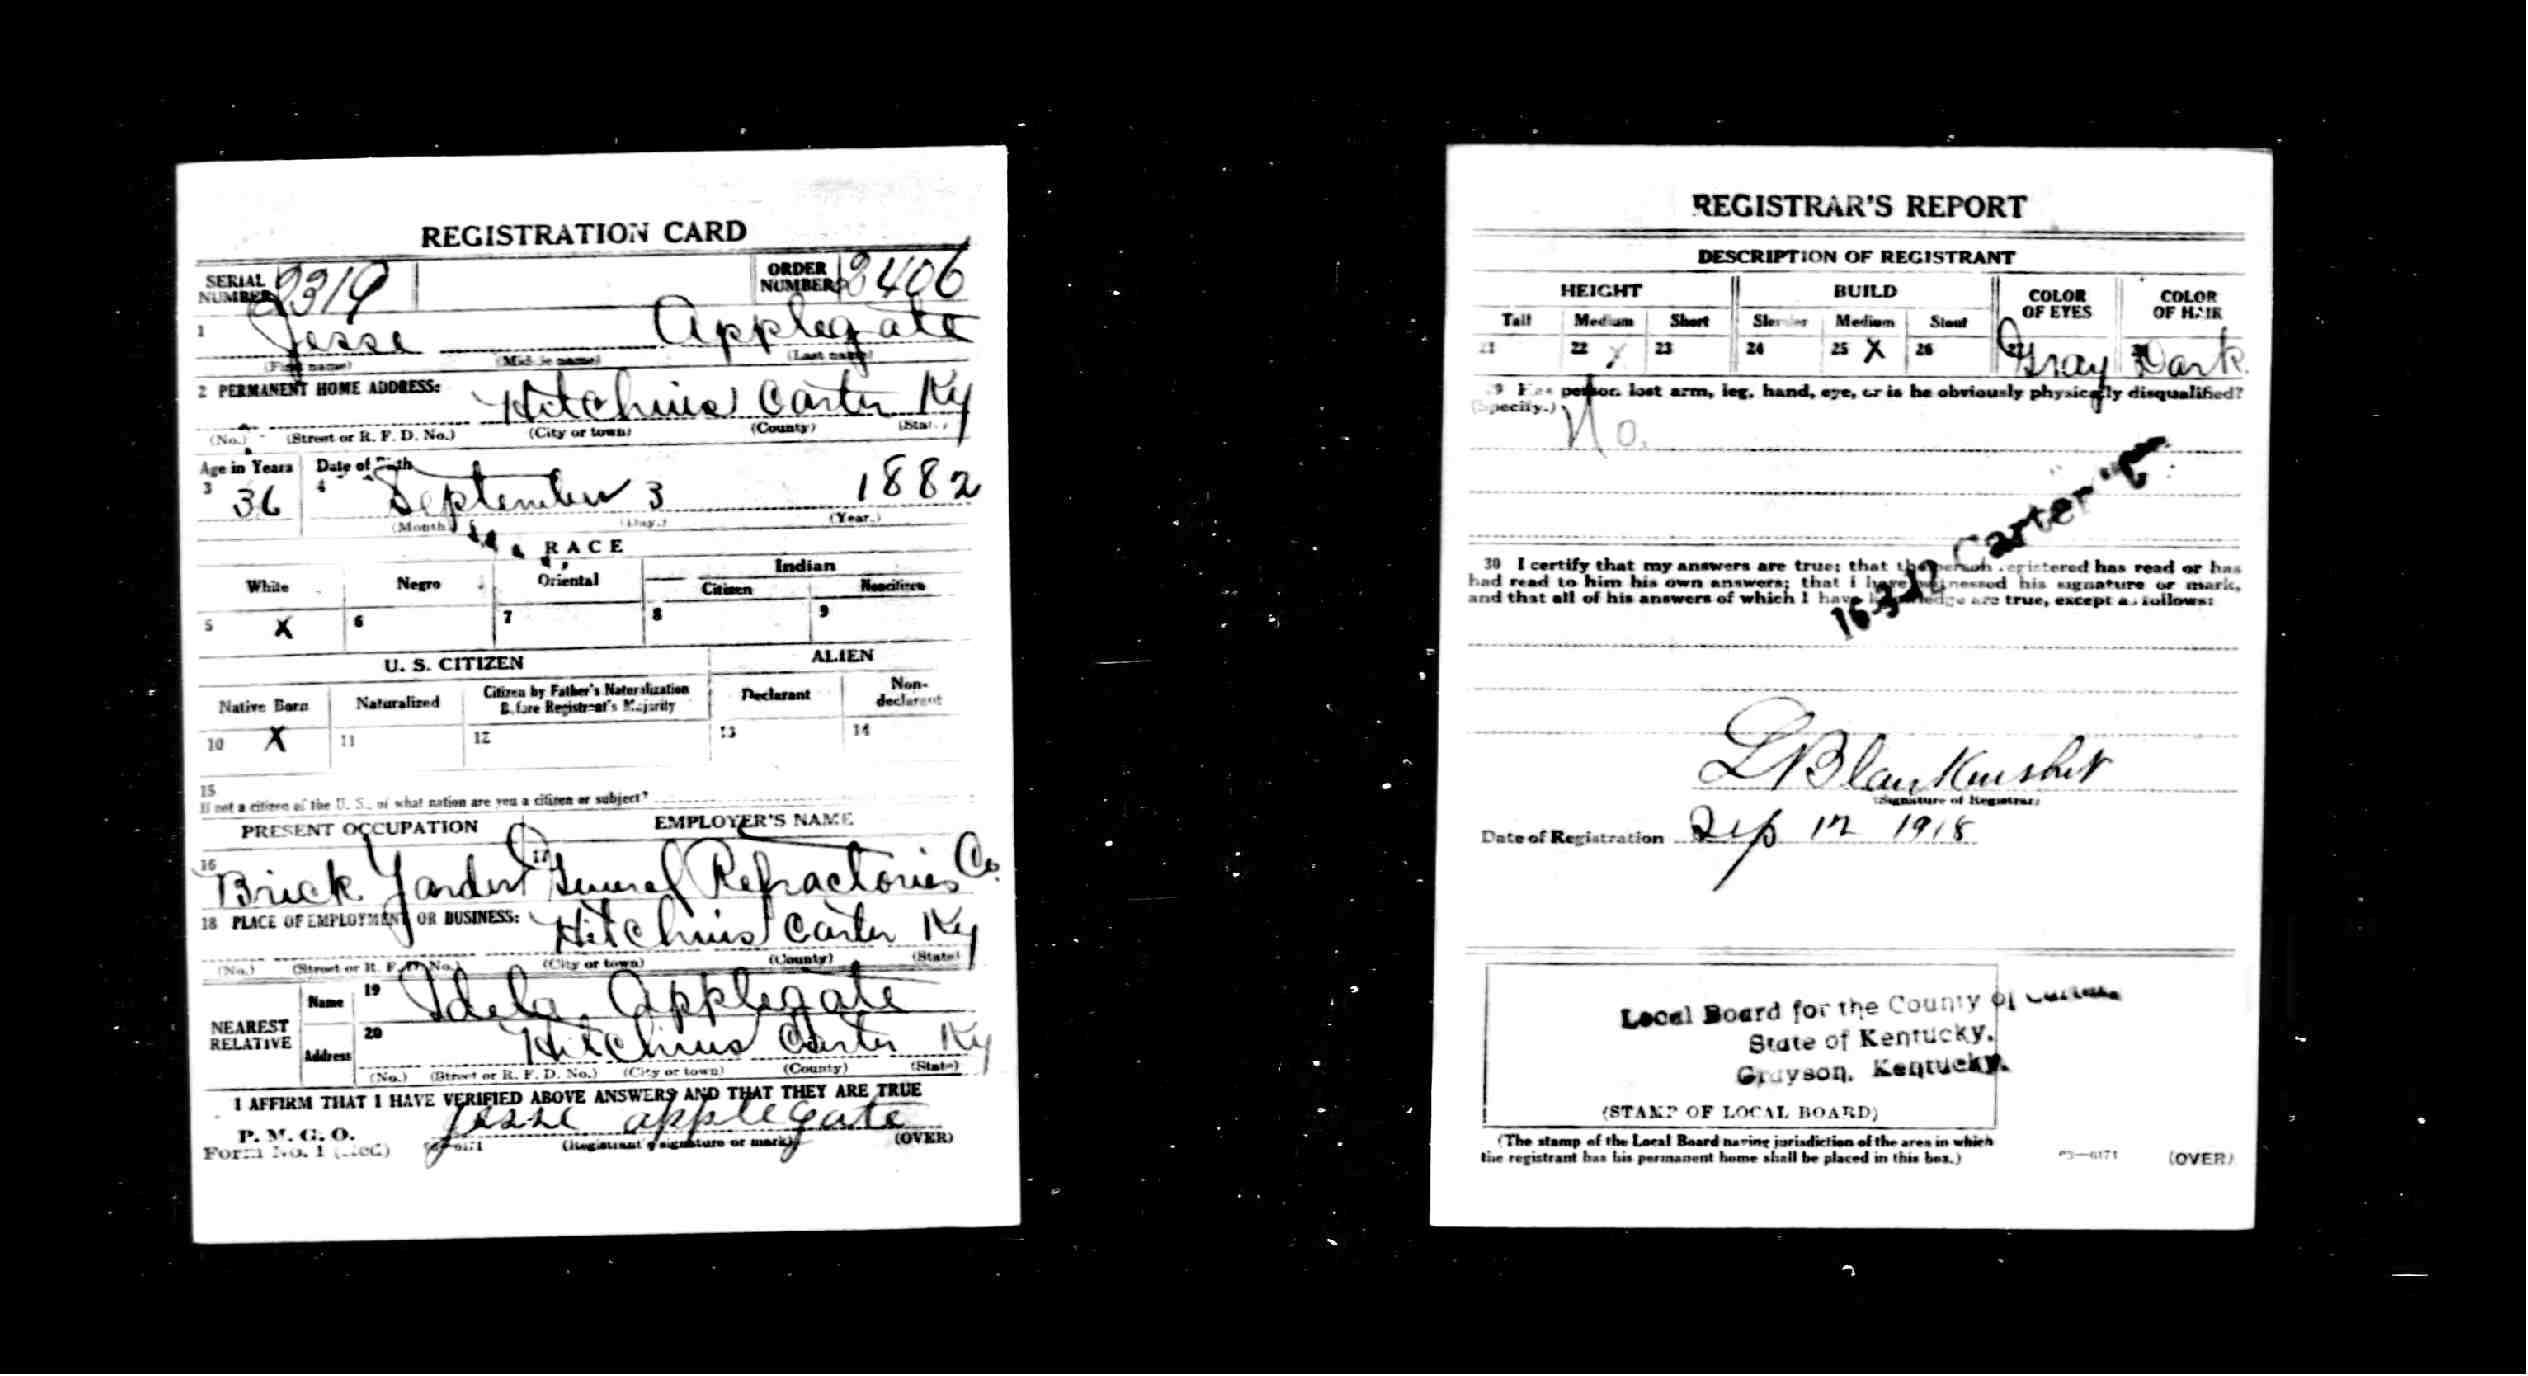 REGISTRATION CARD
SERIAL NUMBER 2319 ORDER NUMBER 2406
1 Jesse Applegate
(First name) (Middle name) (Last name)
2 PERMANENT HOME ADDRESS: Hitchins Carter Ky
(No.) (Street or R. F. D. No.) (City or town) (County) (State)
Age in Years Date of Birth
3 36 4 September 3 1882
(Month) (Day.) (Year.)
RACE
White Negro Oriental Indian
Citizen Noncitizen
5 X 6 7 8 9
U. S. CITIZEN ALIEN
Native Born Naturalized Citizen by Father's Naturalization Before Registrant's Majority Declarant Non-declarant
10 X 11 12 13 14
15
If not a citizen of the U. S., of what nation are you a citizen or subject?
PRESENT OCCUPATION EMPLOYER'S NAME
16 Brick Yarder 17 General Refractories Co.
18 PLACE OF EMPLOYMENT OR BUSINESS: Hitchins Carter Ky
(No.) (Street or R. F. D. No.) (City or town) (County) (State)
NEAREST RELATIVE
Name 19 Idela Applegate
Address 20 Hitchins Carter Ky
(No.) (Street or R. F. D. No.) (City or town) (County) (State)
I AFFIRM THAT I HAVE VERIFIED ABOVE ANSWERS AND THAT THEY ARE TRUE
P. M. G. O.
Form No. 1 (Red) Jesse applegate
(Registrant's signature or mark) (OVER)
REGISTRAR'S REPORT
DESCRIPTION OF REGISTRANT
HEIGHT BUILD COLOR OF EYES COLOR OF HAIR
Tall Medium Short Slender Medium Stout
21 22 X 23 24 25 X 26 Gray Dark
29 Has person lost arm, leg, hand, eye, or is he obviously physically disqualified?
(Specify.) No.
16-3-12 Carter "C"
30 I certify that my answers are true; that the person registered has read or has
had read to him his own answers; that I have witnessed his signature or mark,
and that all of his answers of which I have knowledge are true, except as follows:
(Signature of Registrar)
Date of Registration Sep 12 1918
Local Board for the County of Carter
State of Kentucky.
Grayson, Kentucky.
(STAMP OF LOCAL BOARD)
(The stamp of the Local Board having jurisdiction of the area in which
the registrant has his permanent home shall be placed in this box.)
03—6171 (OVER)